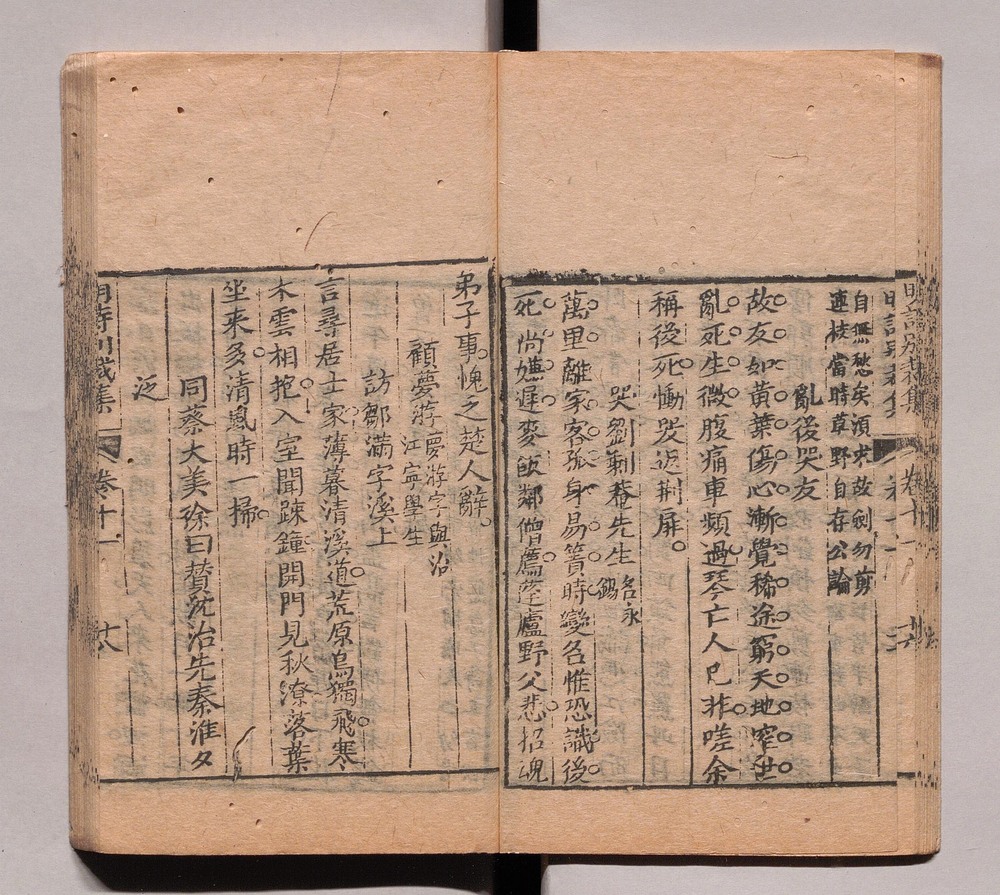 明詩別裁集
卷十一
自無愁矣須求故劍勿剪
連枝當時草野自存公論
亂後哭友
故友如黃葉傷心漸覺稀途窮天地窄世
亂死生微腹痛車頻過琴亡人已非嗟余
稱後死慟哭返荆扉
哭劉剩菴先生 名永錫
萬里離家客孤身易簀時變名惟恐識後
死尚嫌遲麥飯鄰僧薦蓬廬野父悲招魂
弟子事愧乏楚人辭
顧夢游 夢游字與治
江寧學生
訪鄒滿字溪上
言尋居士家薄暮清溪道荒原鳥獨飛寒
木雲相抱入室聞疎鐘開門見秋潦落葉
坐來多清風時一掃
同蔡大美徐曰贊沈治先秦淮夕
泛
明詩別裁集
卷十一